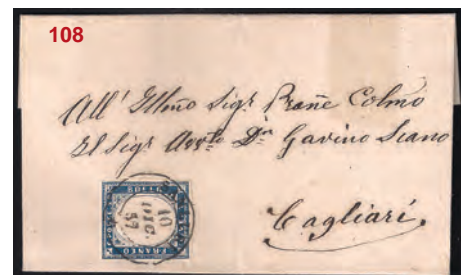 108
All' Illmo Sigr Prone Colmo
Il Sigr Avvto Dn Gavino Scano
Cagliari.
10
DIC.
57
FRANCO